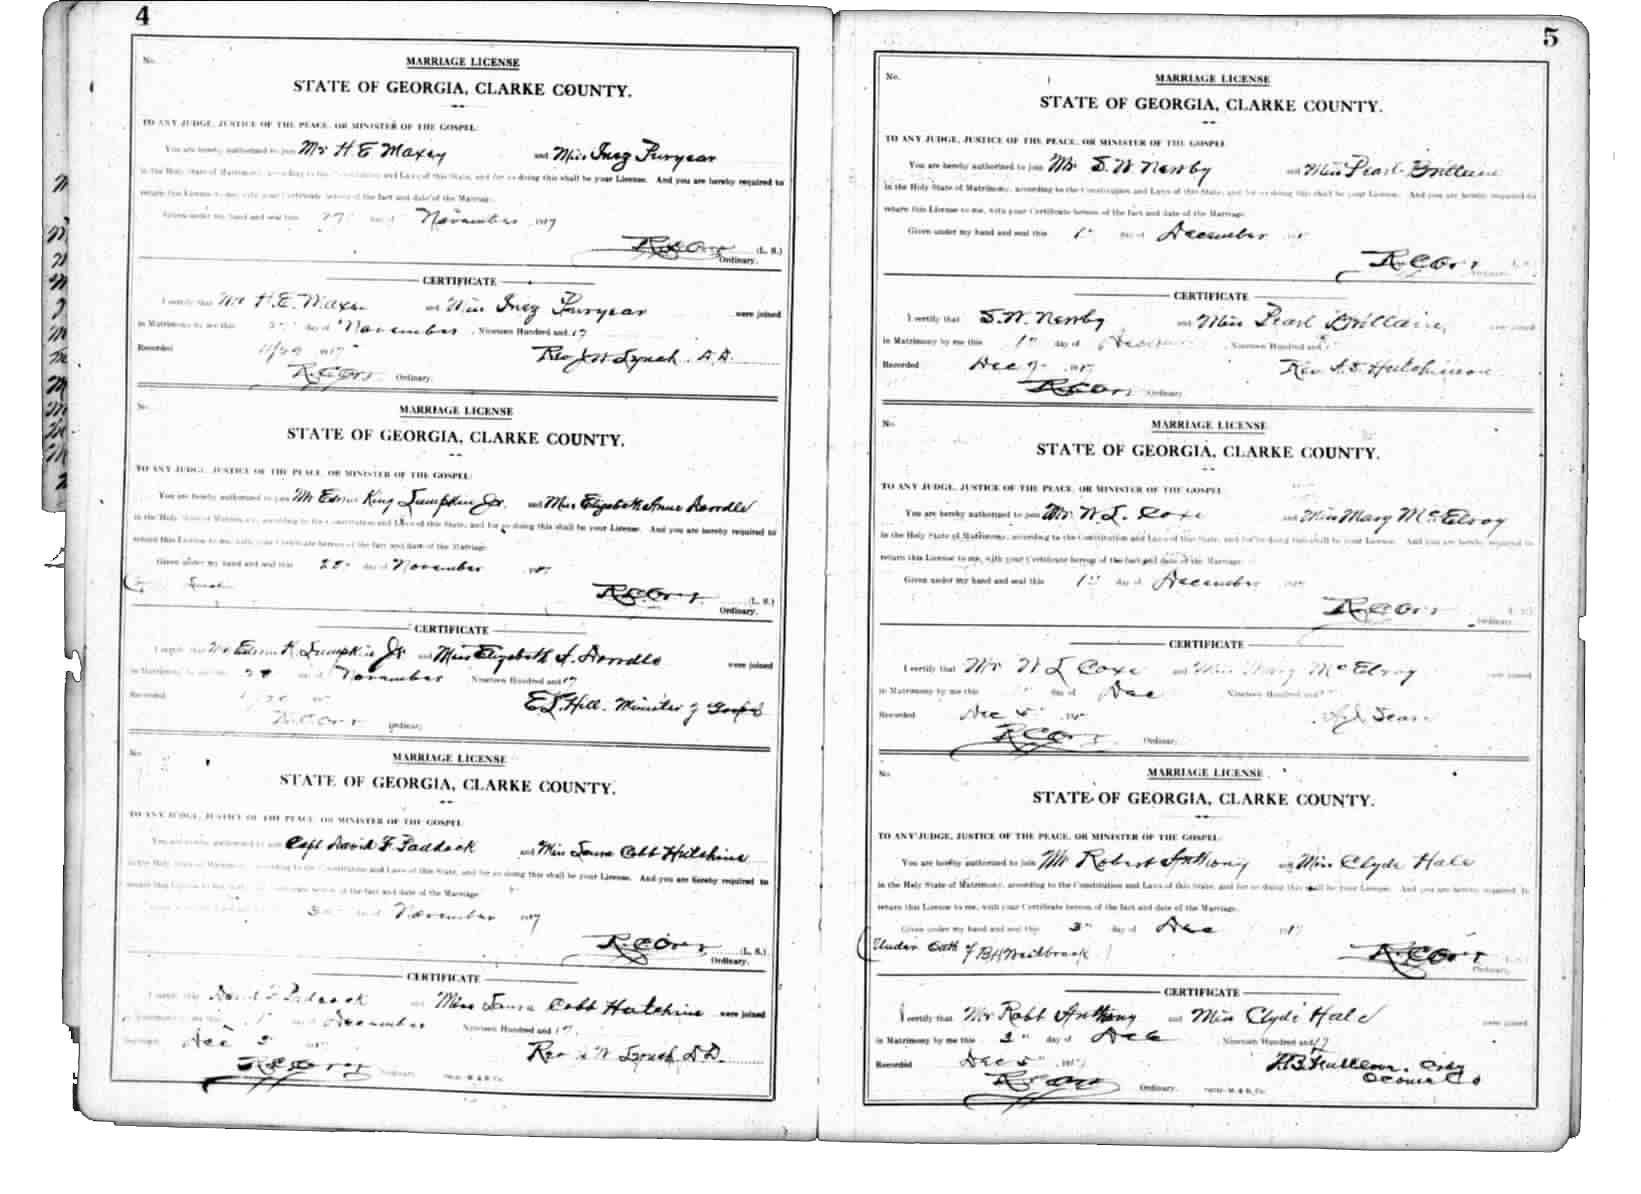 4
No.
MARRIAGE LICENSE
STATE OF GEORGIA, CLARKE COUNTY.
TO ANY JUDGE, JUSTICE OF THE PEACE, OR MINISTER OF THE GOSPEL:
You are hereby authorized to join Mr H E Maxey and Miss Inez Puryear
in the Holy State of Matrimony, according to the Constitution and Laws of this State, and for so doing this shall be your License. And you are hereby required to
return this License to me, with your Certificate hereon of the fact and date of the Marriage.
Given under my hand and seal this 27" day of November 1917
R C Orr (L. S.)
Ordinary.
CERTIFICATE
I certify that Mr H. E. Maxey and Miss Inez Puryear were joined
in Matrimony by me this day of November, Nineteen Hundred and 17
Recorded 11/29 1917 Rev J W Lynch D.D.
R.C Orr Ordinary.
No.
MARRIAGE LICENSE
STATE OF GEORGIA, CLARKE COUNTY.
TO ANY JUDGE, JUSTICE OF THE PEACE, OR MINISTER OF THE GOSPEL:
You are hereby authorized to join Mr Edwin King Lumpkin Jr. and Miss Elizabeth Anne
in the Holy State of Matrimony, according to the Constitution and Laws of this State, and for so doing this shall be your License. And you are hereby required to
return this License to me, with your Certificate hereon of the fact and date of the Marriage.
Given under my hand and seal this 28" day of November 1917
R C Orr (L. S.)
Ordinary.
CERTIFICATE
I certify that Mr Edwin K. Lumpkin Jr and Miss Elizabeth A. were joined
in Matrimony by me this 28 day of November Nineteen Hundred and 17
Recorded E.L. Hill. Minister of Gospel
R.C Orr Ordinary.
No.
MARRIAGE LICENSE
STATE OF GEORGIA, CLARKE COUNTY.
TO ANY JUDGE, JUSTICE OF THE PEACE, OR MINISTER OF THE GOSPEL:
You are hereby authorized to join Capt David F. Paddock and Miss Laura Cobb Hutchins
in the Holy State of Matrimony, according to the Constitution and Laws of this State, and for so doing this shall be your License. And you are hereby required to
return this License to me, with your Certificate hereon of the fact and date of the Marriage.
Given under my hand and seal this day of November 1917
R.C Orr (L. S.)
Ordinary.
CERTIFICATE
I certify that David F Paddock and Miss Laura Cobb Hutchins were joined
in Matrimony by me this day of December Nineteen Hundred and 17
Recorded Dec 1917 Rev J W Lynch D.D.
R C Orr Ordinary.
5
No.
MARRIAGE LICENSE
STATE OF GEORGIA, CLARKE COUNTY.
TO ANY JUDGE, JUSTICE OF THE PEACE, OR MINISTER OF THE GOSPEL:
You are hereby authorized to join Mr S. W. Newby and Miss Pearl Brittain
in the Holy State of Matrimony, according to the Constitution and Laws of this State, and for so doing this shall be your License. And you are hereby required to
return this License to me, with your Certificate hereon of the fact and date of the Marriage.
Given under my hand and seal this 1st day of December
R C Orr (L. S.)
Ordinary.
CERTIFICATE
I certify that S. W. Newby and Miss Pearl Brittain, were joined
in Matrimony by me this 1st day of Nineteen Hundred and
Recorded Dec 1917 Rev Hutchinson
R C Orr Ordinary
No.
MARRIAGE LICENSE
STATE OF GEORGIA, CLARKE COUNTY.
TO ANY JUDGE, JUSTICE OF THE PEACE, OR MINISTER OF THE GOSPEL:
You are hereby authorized to join Mr. W L. Coxe and Miss Mary McElroy
in the Holy State of Matrimony, according to the Constitution and Laws of this State, and for so doing this shall be your License. And you are hereby required to
return this License to me, with your Certificate hereon of the fact and date of the Marriage.
Given under my hand and seal this 1st day of December 1917
R C Orr (L. S.)
Ordinary.
CERTIFICATE
I certify that Mr W L Coxe and Miss Mary McElroy were joined
in Matrimony by me this day of Dec Nineteen Hundred and
Recorded Dec 5
R C Orr Ordinary.
No.
MARRIAGE LICENSE
STATE OF GEORGIA, CLARKE COUNTY.
TO ANY JUDGE, JUSTICE OF THE PEACE, OR MINISTER OF THE GOSPEL:
You are hereby authorized to join Mr Robert Anthony and Miss Clyde Hale
in the Holy State of Matrimony, according to the Constitution and Laws of this State, and for so doing this shall be your License. And you are hereby required to
return this License to me, with your Certificate hereon of the fact and date of the Marriage.
Given under my hand and seal this 3" day of Dec 1917
Under Oath of B H
R.C Orr (L. S.)
Ordinary.
CERTIFICATE
I certify that Mr Robt Anthony and Miss Clyde Hale were joined
in Matrimony by me this 3" day of Dec Nineteen Hundred and 17
Recorded Dec 5 1917
Oconee Co
R C Orr Ordinary.